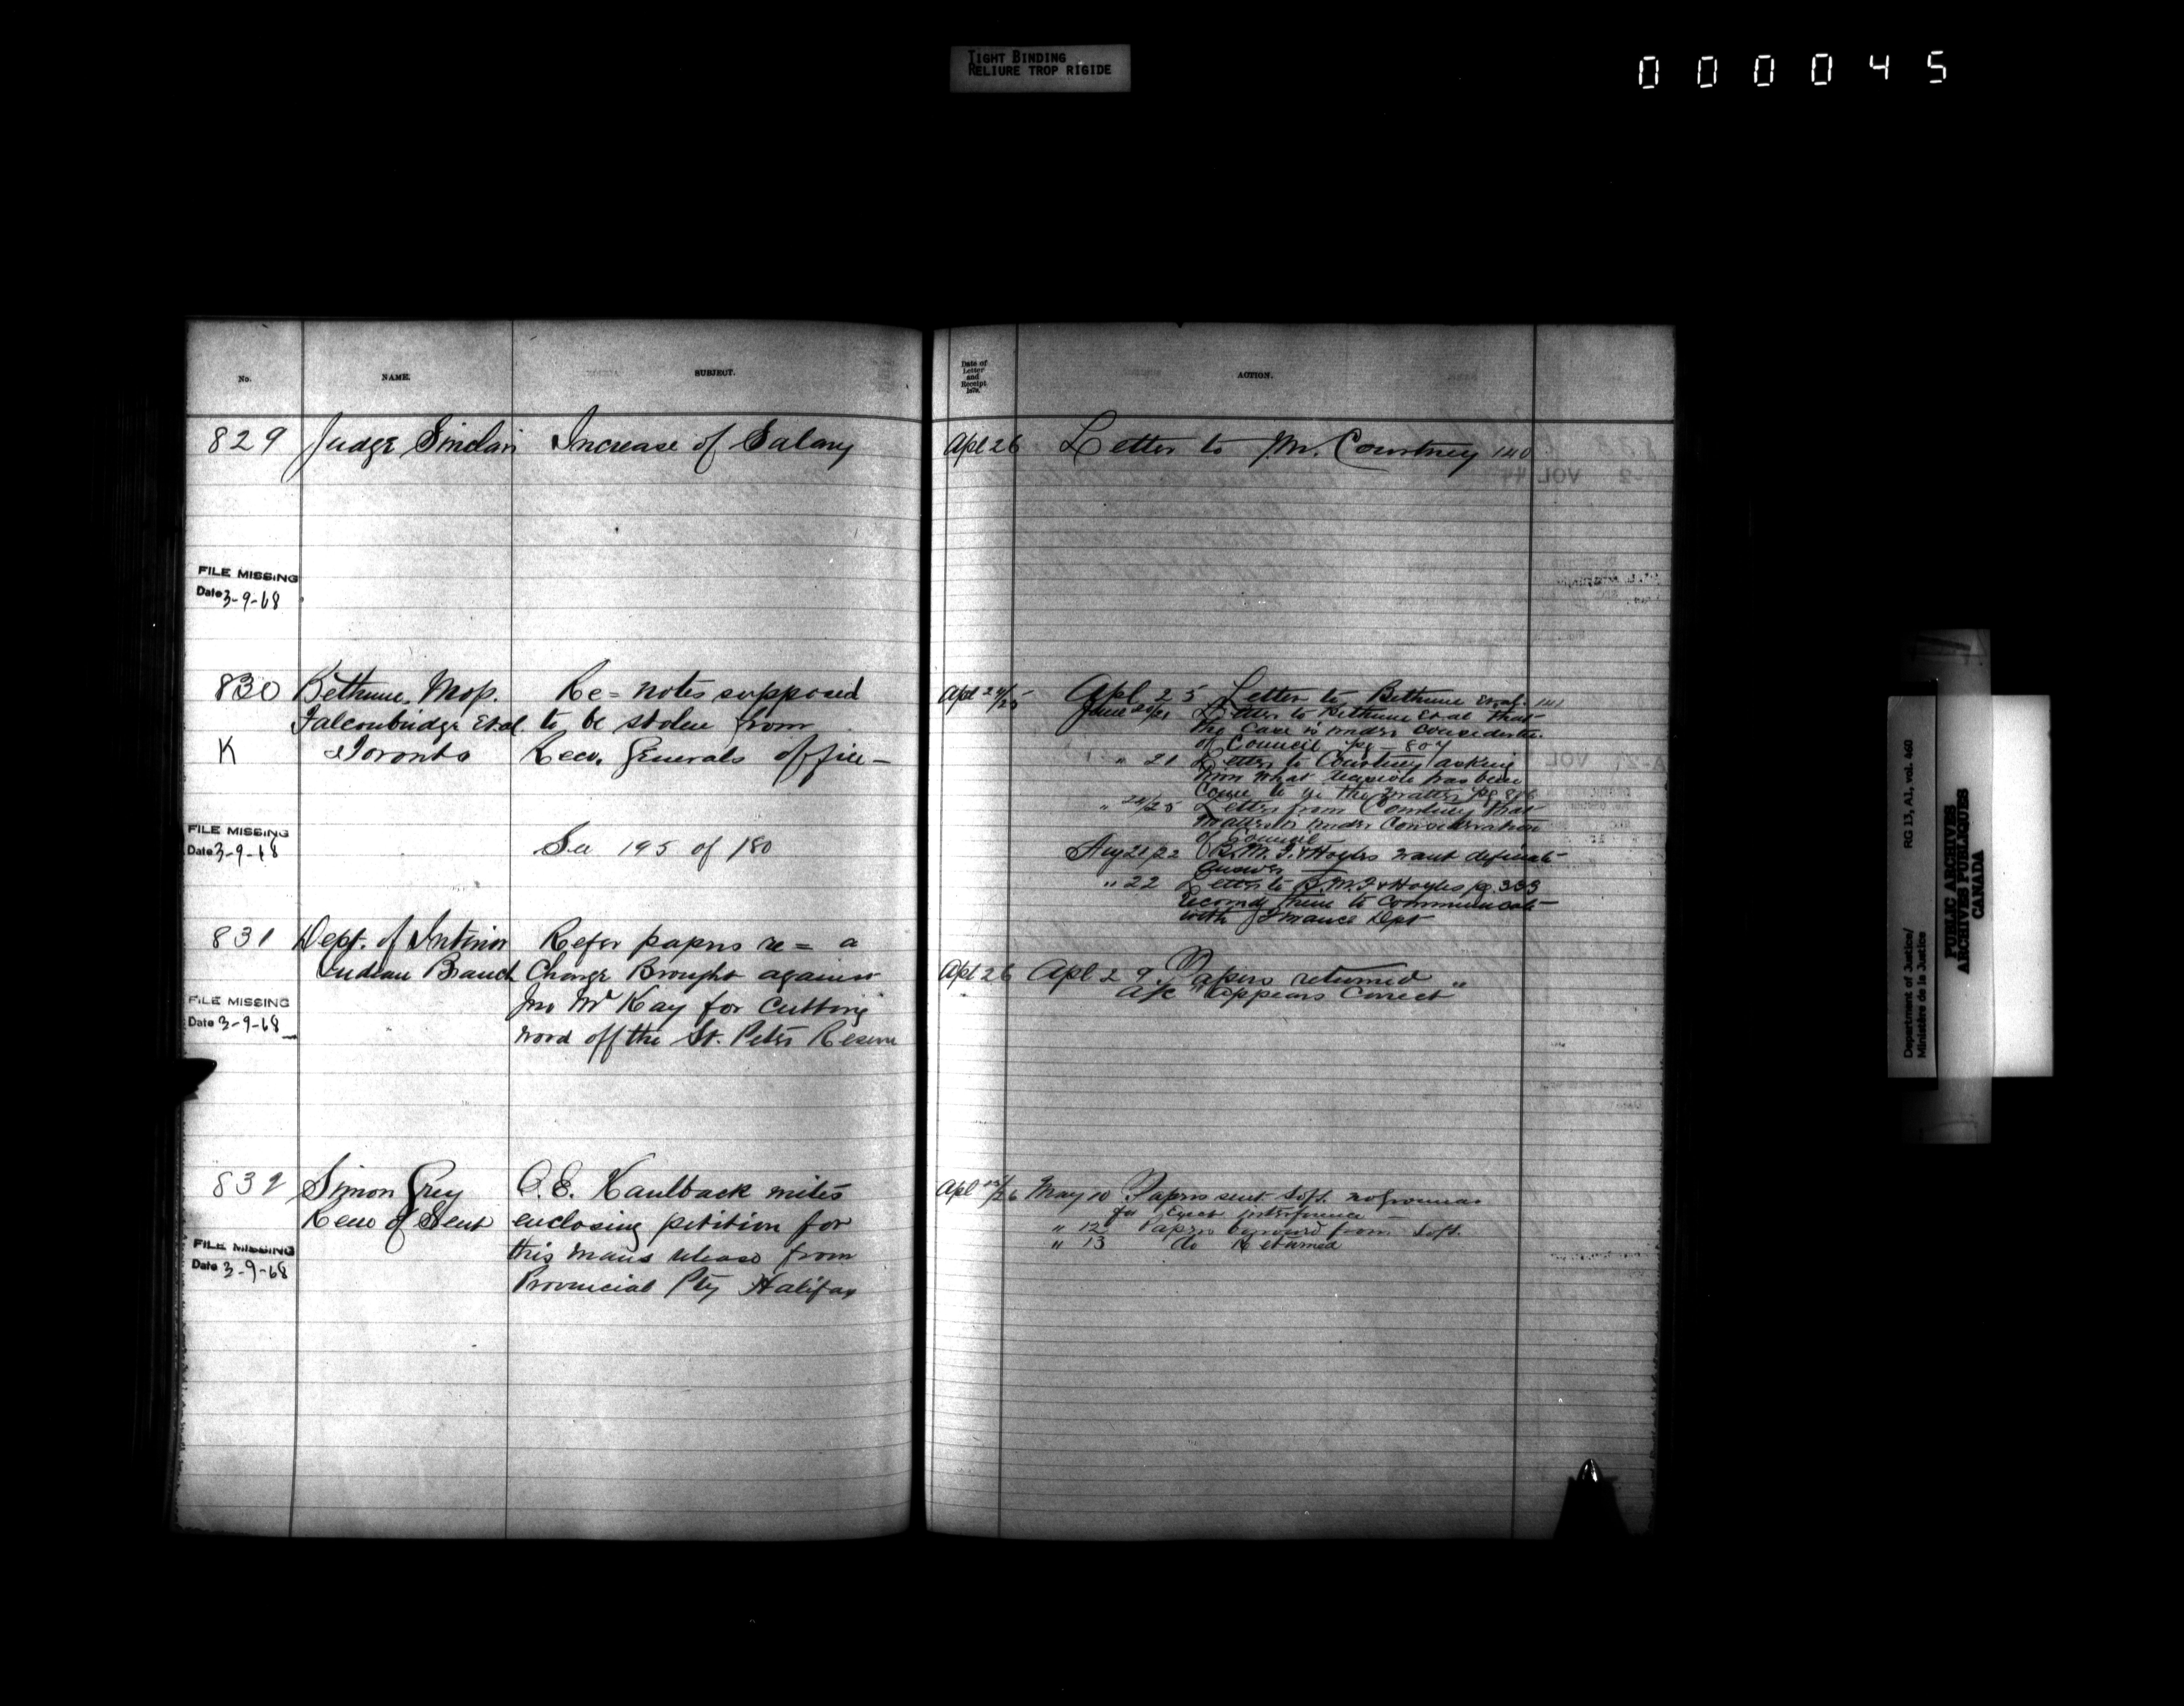 TIGHT BINDING
RELIURE TROP RIGIDE
000045
No. NAME. SUBJECT.
Date of
Letter
and
Receipt
1878.
ACTION.
829 Judge Sinclair Increase of Salary
Apl 26 Letter to Mr. Courtney 140
FILE MISSING
Date 3-9-68
830 Bethune, Mop. Re = notes supposed
Falconbridge et al. to be stolen from
K Toronto Recr. Generals office —
FILE MISSING
Date 3-9-68
See 195 of 180
Apl 24/25 Apl 25 Letter to Bethune et al. 141
June 20/21 Letter to Bethune et al that
the case is under consideratn.
of Council pg - 807
" 21 Letter to Courtney asking
him what decision has been
come to in the matter pg 806
" 24/25 Letter from Courtney that
matter is under consideration
of Council
Aug 21/22 B. M. F. & Hoyles want definate
answer
" 22 Letter to B. M. F & Hoyles pg. 333
recomdg them to communicate
with Finance Dept
831 Dept. of Interior Refer papers re = a
Indian Branch Charge Brought against
Jno McKay for cutting
wood off the St. Peters Reserve
FILE MISSING
Date 3-9-68
Apl 26 Apl 29. Papers returned
a/c "appears Correct"
832 Simon Grey C. E. Kaulback writes
enclosing petition for
this mans release from
Provincial Pty Halifax
FILE MISSING
Date 3-9-68
May 10 Papers sent
for Exect. interference
" 12 Papers from
" 13 do Returned
Department of Justice/
Ministère de la Justice
RG 13, A1, vol. 460
PUBLIC ARCHIVES
ARCHIVES PUBLIQUES
CANADA